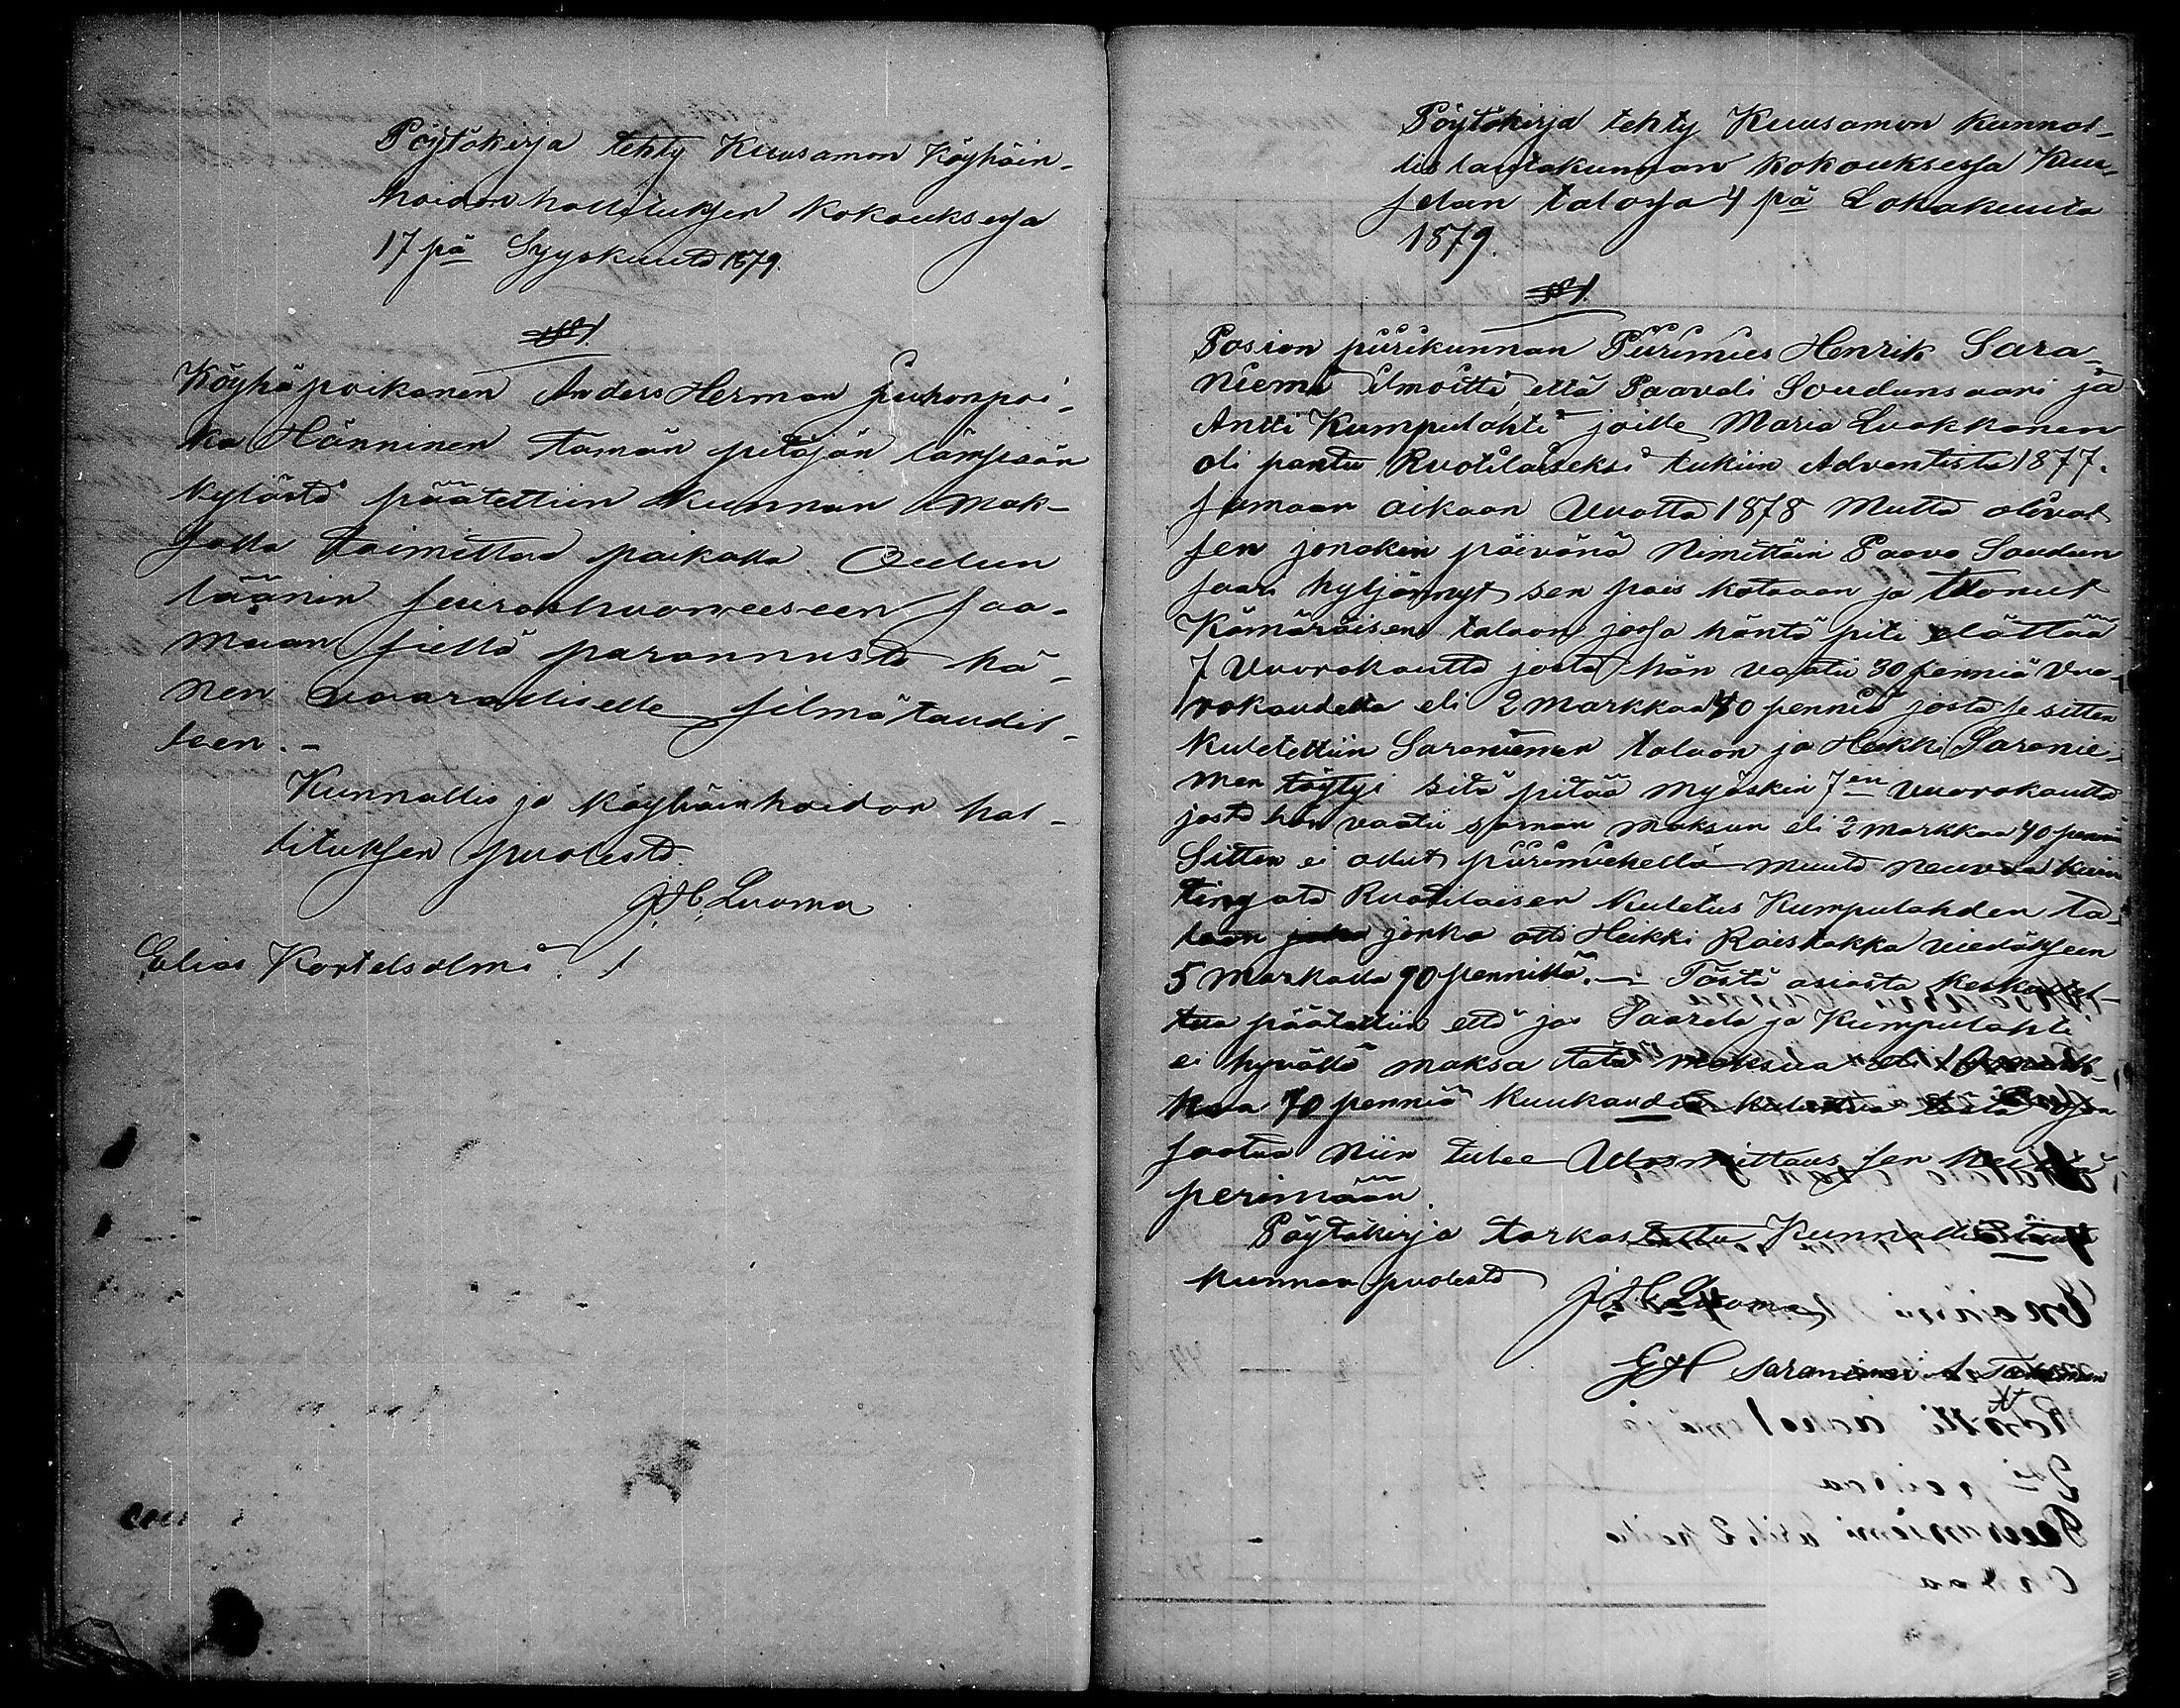 Pöytäkirja tehty Kuusamon Köyhäin-
hoidon hallituksen kokouksessa
17 pä Syyskuuta 1879.
§ 1.
Köyhäpoikanen Anders Herman Juhonpoi-
ka Hänninen tämän pitäjän lämpsän
kylästä päätettiin kunnan mak-
solla toimittaa paikalla Oulun
läänin sairashuoneeseen saa-
maan siellä parannusta hä-
nen vaaralliselle silmätaudil-
leen. -
Kunnallis ja köyhäinhoidon hal-
lituksen puolesta.
J. H. Luoma
Elias Kortelsalmi
Pöytäkirja tehty Kuusamon kunnal-
lis lautakunnan kokouksessa Kuu-
selan talossa 4 pä Lokakuuta
1879.
§ 1.
Posion piirikunnan Piirimies Henrik Sara-
niemi ilmoitti, että Paavali Soudunsaari ja
Antti Kumpulahti joille Maria Luokkanen
oli pantu Ruotilaiseksi lukiin Adventista 1877.
samaan aikaan Vuotta 1878 Mutta olivat
sen jonakin päivänä Nimittäin Paavo Soudun
saari hyljännyt sen pois kotoaan ja tuonut
Kämäräisen taloon jossa häntä piti elättää
7 Vuorokautta josta hän vaatii 30 penniä Vuo-
rokaudelta eli 2 markkaa 40 penniä josta se sitten
kuletettiin Saraniemen taloon ja Heikki Saranie-
men täytyi sitä pitää myöskin 7 en vuorokautta
josta hän vaatii saman maksun eli 2 markkaa 40 penniä
Sitten ei ollut piirimiehellä muuta neuvoa kuin
tingata Ruotilaisen kuletus Kumpulahden ta-
loon jonka otti Heikki Raistakka viedäkseen
5 Markalla 90 pennillä. - Tästä asiasta keskustel-
tua päätettiin että jos Saarela ja Kumpulahti
ei hyvällä maksa tätä maksua eli 10 mark-
kaa 70 penniä kuukauden kuluttua tästä
saatua niin tulee Ulosmittaus sen heiltä
perimään.
Pöytäkirja tarkastettu Kunnallislauta
kunnan puolesta
J. H. Luoma
G H Saraniemi